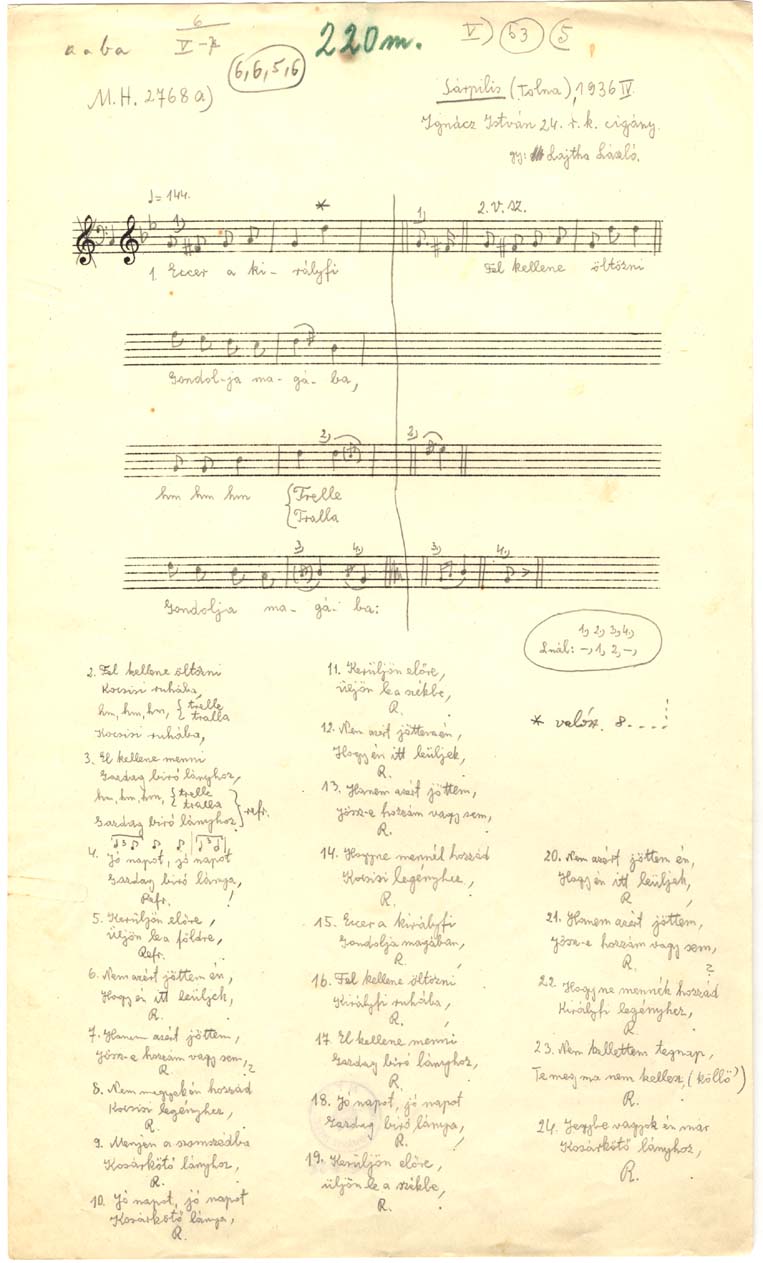 a a b a
6
V - 7
(6,6,5,6)
220 m.
V) 63 5
M.H. 2768 a)
Sárpilis (Tolna), 1936 IV.
Ignácz István 24. r. k. cigány.
gy: Lajtha László.
♩= 144.
1)
*
1)
2. v. sz.
1. Eccer a ki- rályfi
Fel kellene öltözni
Gondol-ja ma- gá- ba,
2)
2)
hm hm hm { Trelle
Tralla
3) 4.)
3) 4.)
Gondolja ma- gá- ba:
1, 2, 3, 4,
Lnál: -, 1, 2, -,
* valósz. 8
2. Fel kellene öltözni
Kocsisi ruhába,
hm, hm, hm, { trelle
tralla
Kocsisi ruhába,
3. El kellene menni
Gazdag biró lányhoz,
hm, hm, hm, { trelle
tralla } refr.
Gazdag biró lányhoz
4. Jó napot, jó napot
Gazdag biró lánya,
Refr. !
5. Kerüljön előre,
üljön le a földre,
Refr.
6. Nem azért jöttem én,
Hogy én itt leüljek,
R.
7. Hanem azért jöttem,
Jössz-e hozzám vagy sem,
R. ?
8. Nem megyek én hozzád
Kocsisi legényhez,
R.
9. Menjen a szomszédba
Kosárkötő lányhoz,
R.
10. Jó napot, jó napot
Kosárkötő lánya,
R.
11. Kerüljön előre,
üljön le a székbe,
R.
12. Nem azért jöttem én,
Hogy én itt leüljek,
R.
13. Hanem azért jöttem,
Jössz-e hozzám vagy sem,
R.
14. Hogyne mennél hozzád
Kocsisi legényhez,
R.
15. Eccer a királyfi
Gondolja magában,
R.
16. Fel kellene öltözni
Királyfi ruhába,
R.
17. El kellene menni
Gazdag biró lányhoz,
R.
18. Jó napot, jó napot
Gazdag biró lánya,
R. !
19. Kerüljön előre,
üljön le a székbe,
R.
20. Nem azért jöttem én,
Hogy én itt leüljek,
R
21. Hanem azért jöttem,
Jössz-e hozzám vagy sem,
R. ?
22. Hogyne mennék hozzád
Királyfi legényhez,
R.
23. Nem kellettem tegnap,
Te meg ma nem kellesz, (kölló)
R.
24. Jegybe vagyok én már
Kosárkötő lányhoz,
R.